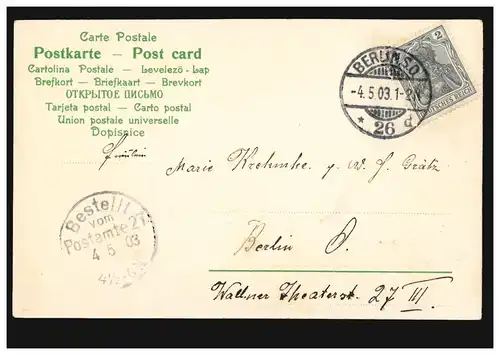 Carte Postale
Postkarte — Post card
Cartolina Postale — Levelező-Lap
Brefkort — Briefkaart — Brevkort
ОТКРЫТОЕ ПИСЬМО
Tarjeta postal — Carto postal
Union postale universelle
Dopisnice
2
BERLIN S.O.
-4.5.03.1-2
* 26 d
Fräulein
Marie Krehmke. p. W. J. Grätz
Bestellt
vom
Postamte 27
4 5 03
Berlin O.
Wallner Theaterstr. 27 III.